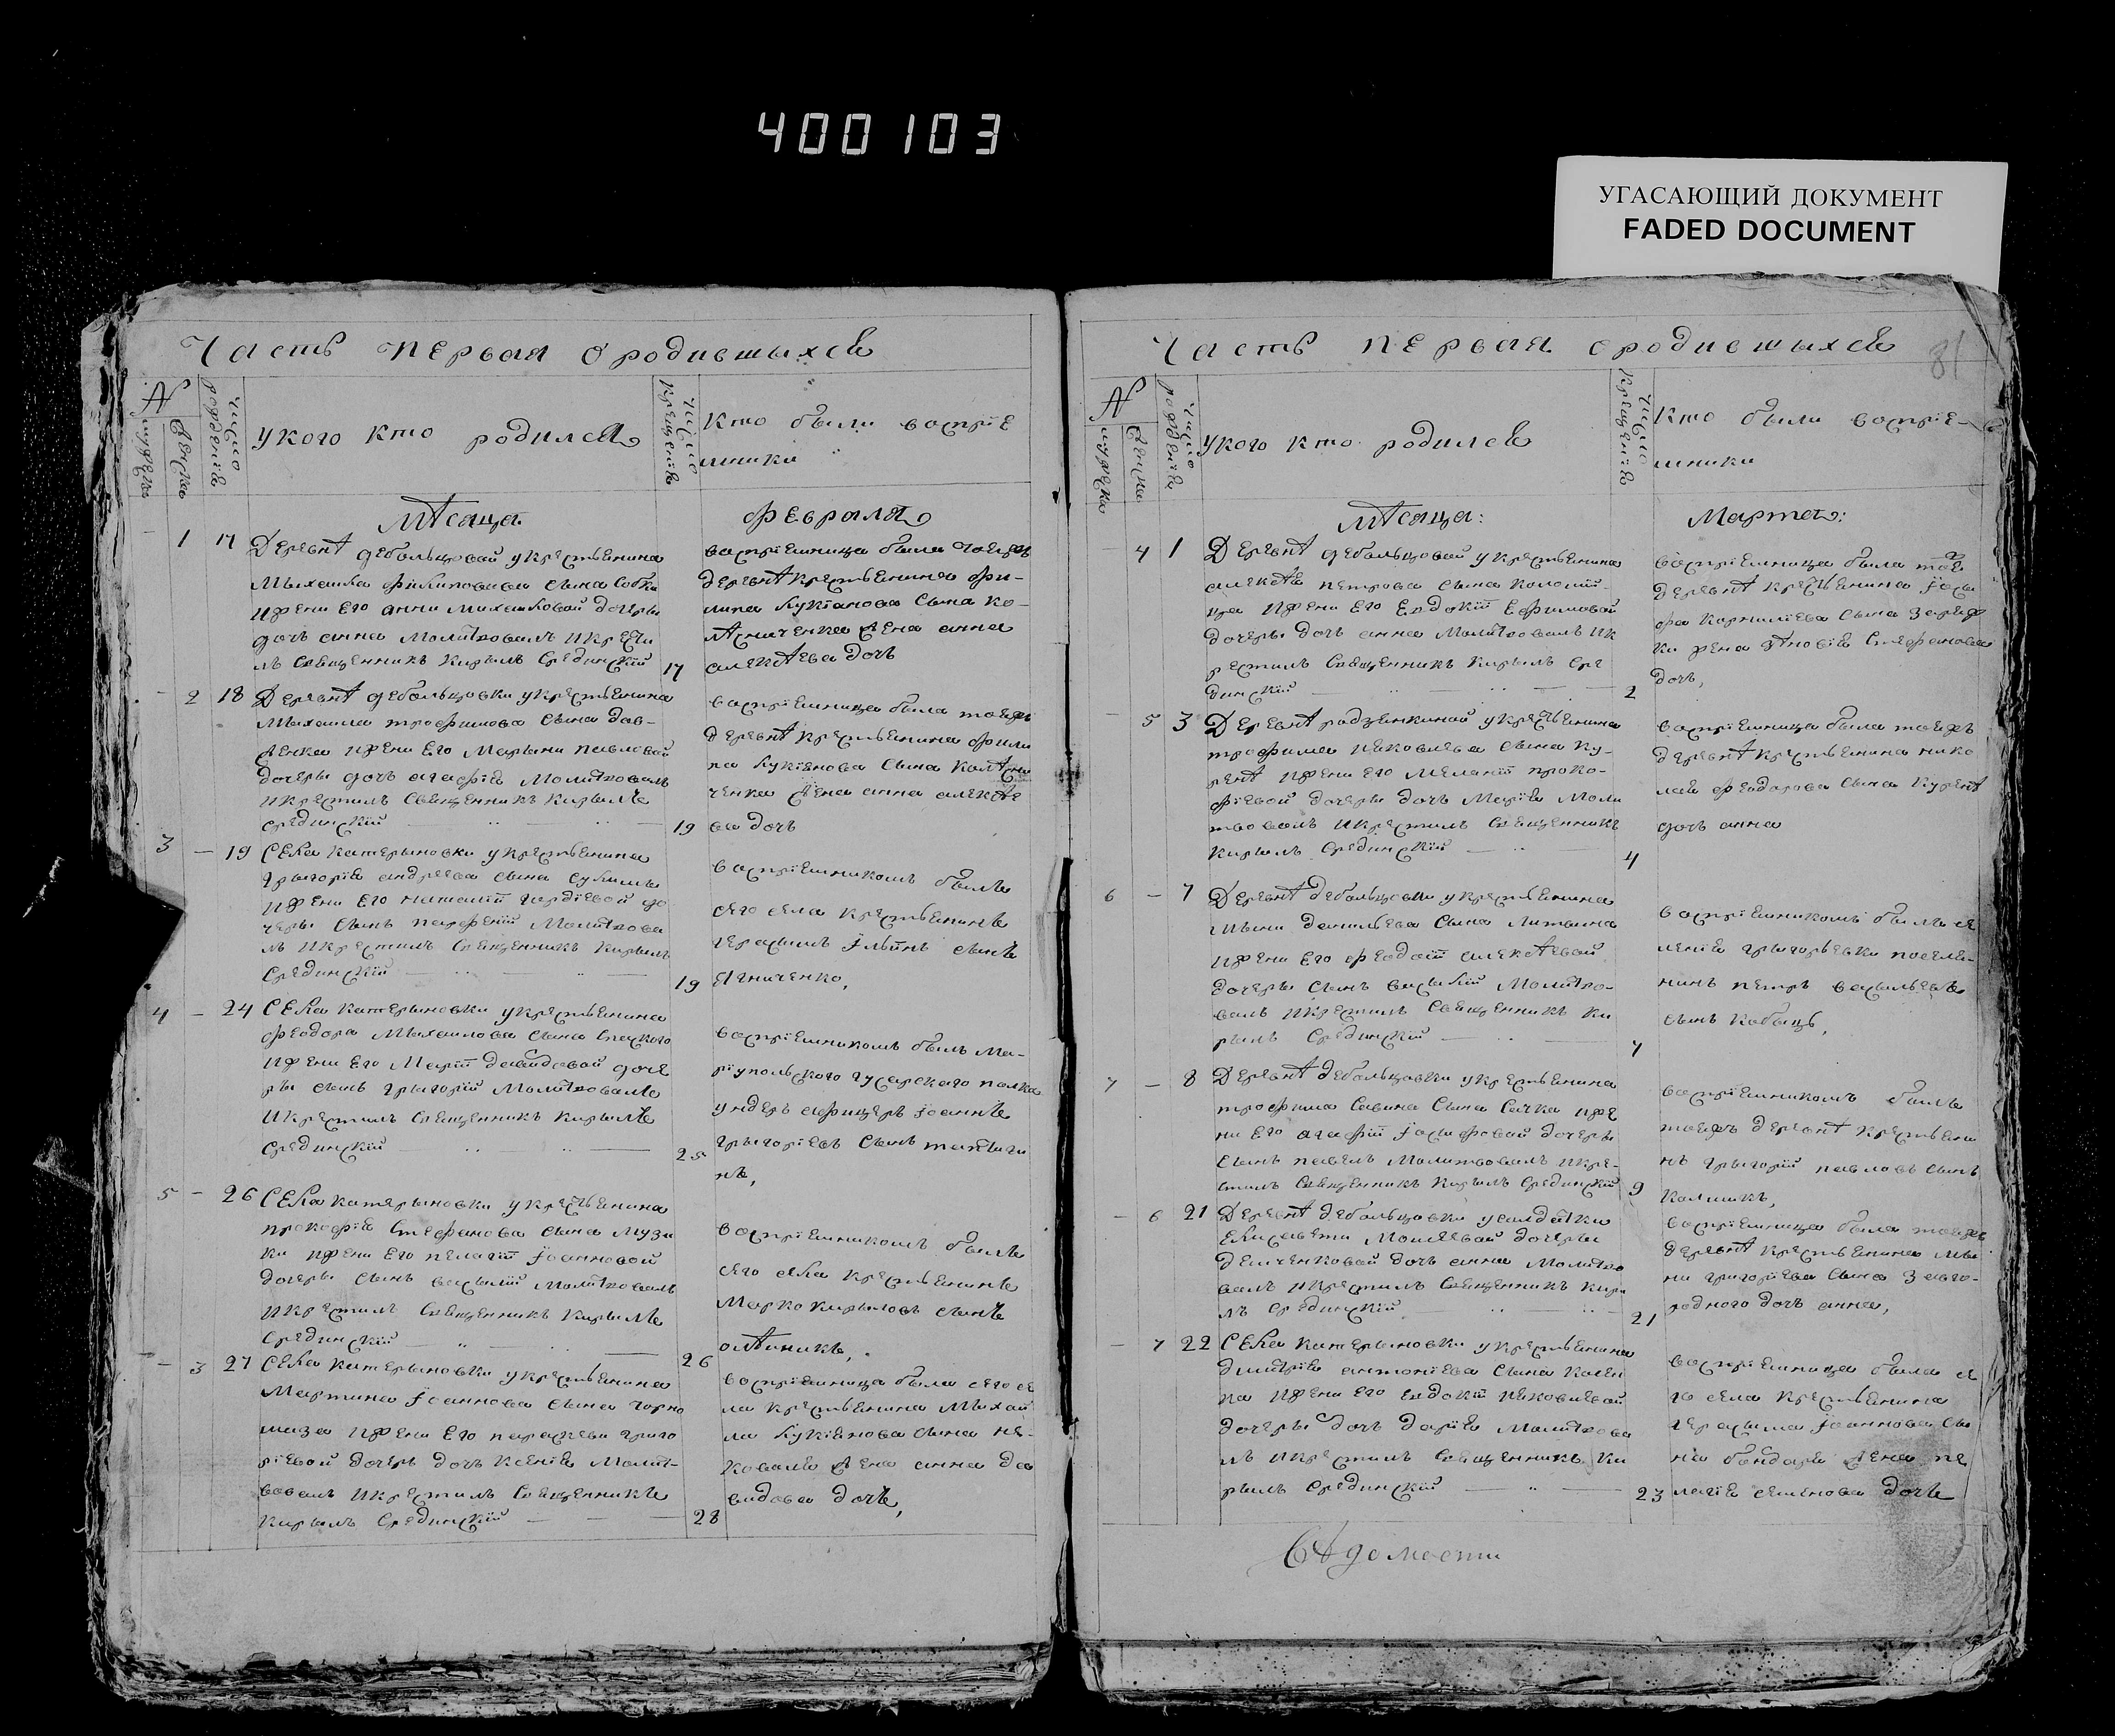 400103
УГАСАЮЩИЙ ДОКУМЕНТ
FADED DOCUMENT
Часть первая о родившыхся
№
мужеска
женска
число рождения
у кого кто родился
число крещения
кто были воспрїе
мники
Мѣсяца
февраля
1 17
Деревнѣ дебальцовой у крестьянина
Михаила филипова сына
и жени его анни михайловой дочеры
дочь анна Молитвовалъ и крести
лъ священникъ Кирылъ Срединскїй 17
воспрїемница была тоежъ
деревнѣ крестьянина фи-
липа Лукїанова сына ко-
лѣсниченка жена анна
алексѣева дочь
2 18
Деревнѣ дебальцовки у крестьянина
Михаила трофимова сына
и жени его Марыни павловой
дочеры дочь агафїя Молитвовалъ
и крестилъ священникъ Кирылъ
Срединскїй 19
воспрїемница была тоежъ
деревнѣ крестьянина фили
па Лукїянова сына колѣсни
ченка жена анна алексѣе
ва дочь
3 – 19
Села катерыновки у крестьянина
Грыгорїя андреева сына
и жени его наталїи гордїевой до
черы сынъ парфенїй Молитвова
лъ и крестилъ священникъ Кирылъ
Срединскїй 19
воспрїемникомъ былъ
сего села крестьянинъ
герасимъ їльинъ сынъ
Ягниченко,
4 – 24
Села катерыновки у крестьянина
феодора Михаилова сына
и жени его Марїи давидовой доче
ры сынъ грыгорїй Молитвовалъ
и крестилъ священникъ Кирылъ
Срединскїй 25
воспрїемникомъ былъ Ма-
рїупольского гусарского полка
ундеръ афицеръ їоаннъ
грыгорїевъ сынъ
нъ,
5 – 26
Села катерыновки у крестьянина
прокофїя стефанова сына музи
ки и жени его пелагїи їоанновой
дочеры сынъ василїй Молитвовалъ
и крестилъ священникъ Кирылъ
Срединскїй 26
воспрїемникомъ былъ
сего села крестьянинъ
Марко кирыловъ сынъ
олѣйникъ,
– 3 27
Села катерыновки у крестьянина
Мартина їоаннова сына горно
и жени его параскеви григо
рїевой дочеры дочь ксенїя Молит-
вовалъ и крестилъ священникъ
Кирылъ Срединскїй 28
воспрїемница была сего се
ла крестьянина Михаи
ла Лукїянова сына
жена анна да
видова дочь,
Часть первая о родившыхся
81
№
мужеска
женска
число рождения
у кого кто родился
число крещения
кто были воспрїе-
мники
Мѣсяца:
Марта:
4 1
Деревнѣ дебальцовой у крестьянина
алексѣя петрова сына коломїй-
ца и жени его Евдокїи Ефимовой
дочеры дочь анна Молитвовалъ и к
рестилъ священникъ Кирылъ Сре
динскїй 2
воспрїемница была тоеж
деревнѣ крестьянина їоси
фа Корнилїева сына
ки жена Стефанова
дочь,
– 5 3
Деревнѣ родзенкиной у крестьянина
трофима яковлева сына Ку-
ренѣ и жени его Меланїи проко-
фїевой дочеры дочь Марїя Моли
твовалъ и крестилъ священникъ
Кирылъ Срединскїй 4
воспрїемница была тоежъ
деревнѣ крестьянина нико
лая феодорова сына Куренѣ
дочь анна
6 – 7
Деревнѣ дебальцовки у крестьянина
данильева сына Литвина
и жени его феодосїи алексѣевой
дочеры сынъ василїй Молитво-
валъ и крестилъ священникъ Ки
рылъ Срединскїй 7
воспрїемникомъ былъ се
ленїя грыгорьевки поселя-
нинъ петръ васильевъ
сынъ Кобецъ,
7 – 8
Деревнѣ дебальцовки у крестьянина
трофима Савина сына Сачка и же
ни его агафїи їосифовой дочеры
сынъ павелъ Молитвовалъ и кре-
стилъ священникъ Кирылъ Срединскїй 9
воспрїемникомъ былъ
тоежъ деревнѣ крестьяни
нъ грыгорїй павловъ сынъ
Калишкъ,
– 6 21
Деревнѣ дебальцовки у солдатки
Елисавети Моисеевой дочеры
демченковой дочь анна Молитво
валъ и крестилъ священникъ Киры
лъ Срединскїй 21
воспрїемница была тоежъ
деревнѣ крестьянина
григорїева сына Заго-
родного дочь анна,
– 7 22
Села катерыновки у крестьянина
димитрїя антонїева сына
и жени его Евдокїи яковлевой
дочеры дочь дарїя Молитвова
лъ и крестилъ священникъ Ки
рылъ Срединскїй 23
воспрїемница была се
го села крестьянина
герасима їоаннова сы
на бондаря жена пе
лагїя семенова дочь
Вѣдомости